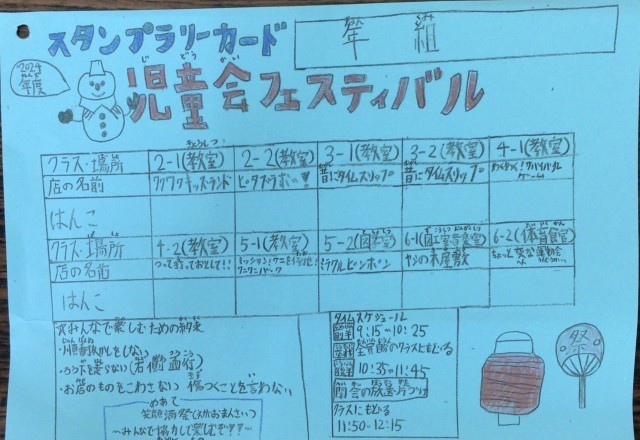 スタンプラリーカード
年 組
2024年度
じどうかい
児童会フェスティバル
クラス・場所 2-1(教室) 2-2(教室) 3-1(教室) 3-2(教室) 4-1(教室)
店の名前 ワクワクキッズランド ピタゴラボ 昔にタイムスリップ 昔にタイムスリップ わくわく!サバイバルゲーム
はんこ
クラス・場所 4-2(教室) 5-1(教室) 5-2(図工室) 6-1 6-2(体育館)
店の名前 つって釣っておとして!! ミッション! ミラクルピンポン の木屋敷 ちょっと変な運動会
はんこ
☆みんなで楽しむための約束
・順番ぬかしをしない
・ろう下を走らない(右側歩行)
・お店のものをこわさない 傷つくことを言わない
めあて
〜みんなで協力して楽しむぞ???〜
タイムスケジュール
前半 9:15〜10:25
全学級のクラスにもどる
後半 10:35〜11:45
閉会の放送
クラスにもどる
11:50-12:15
祭